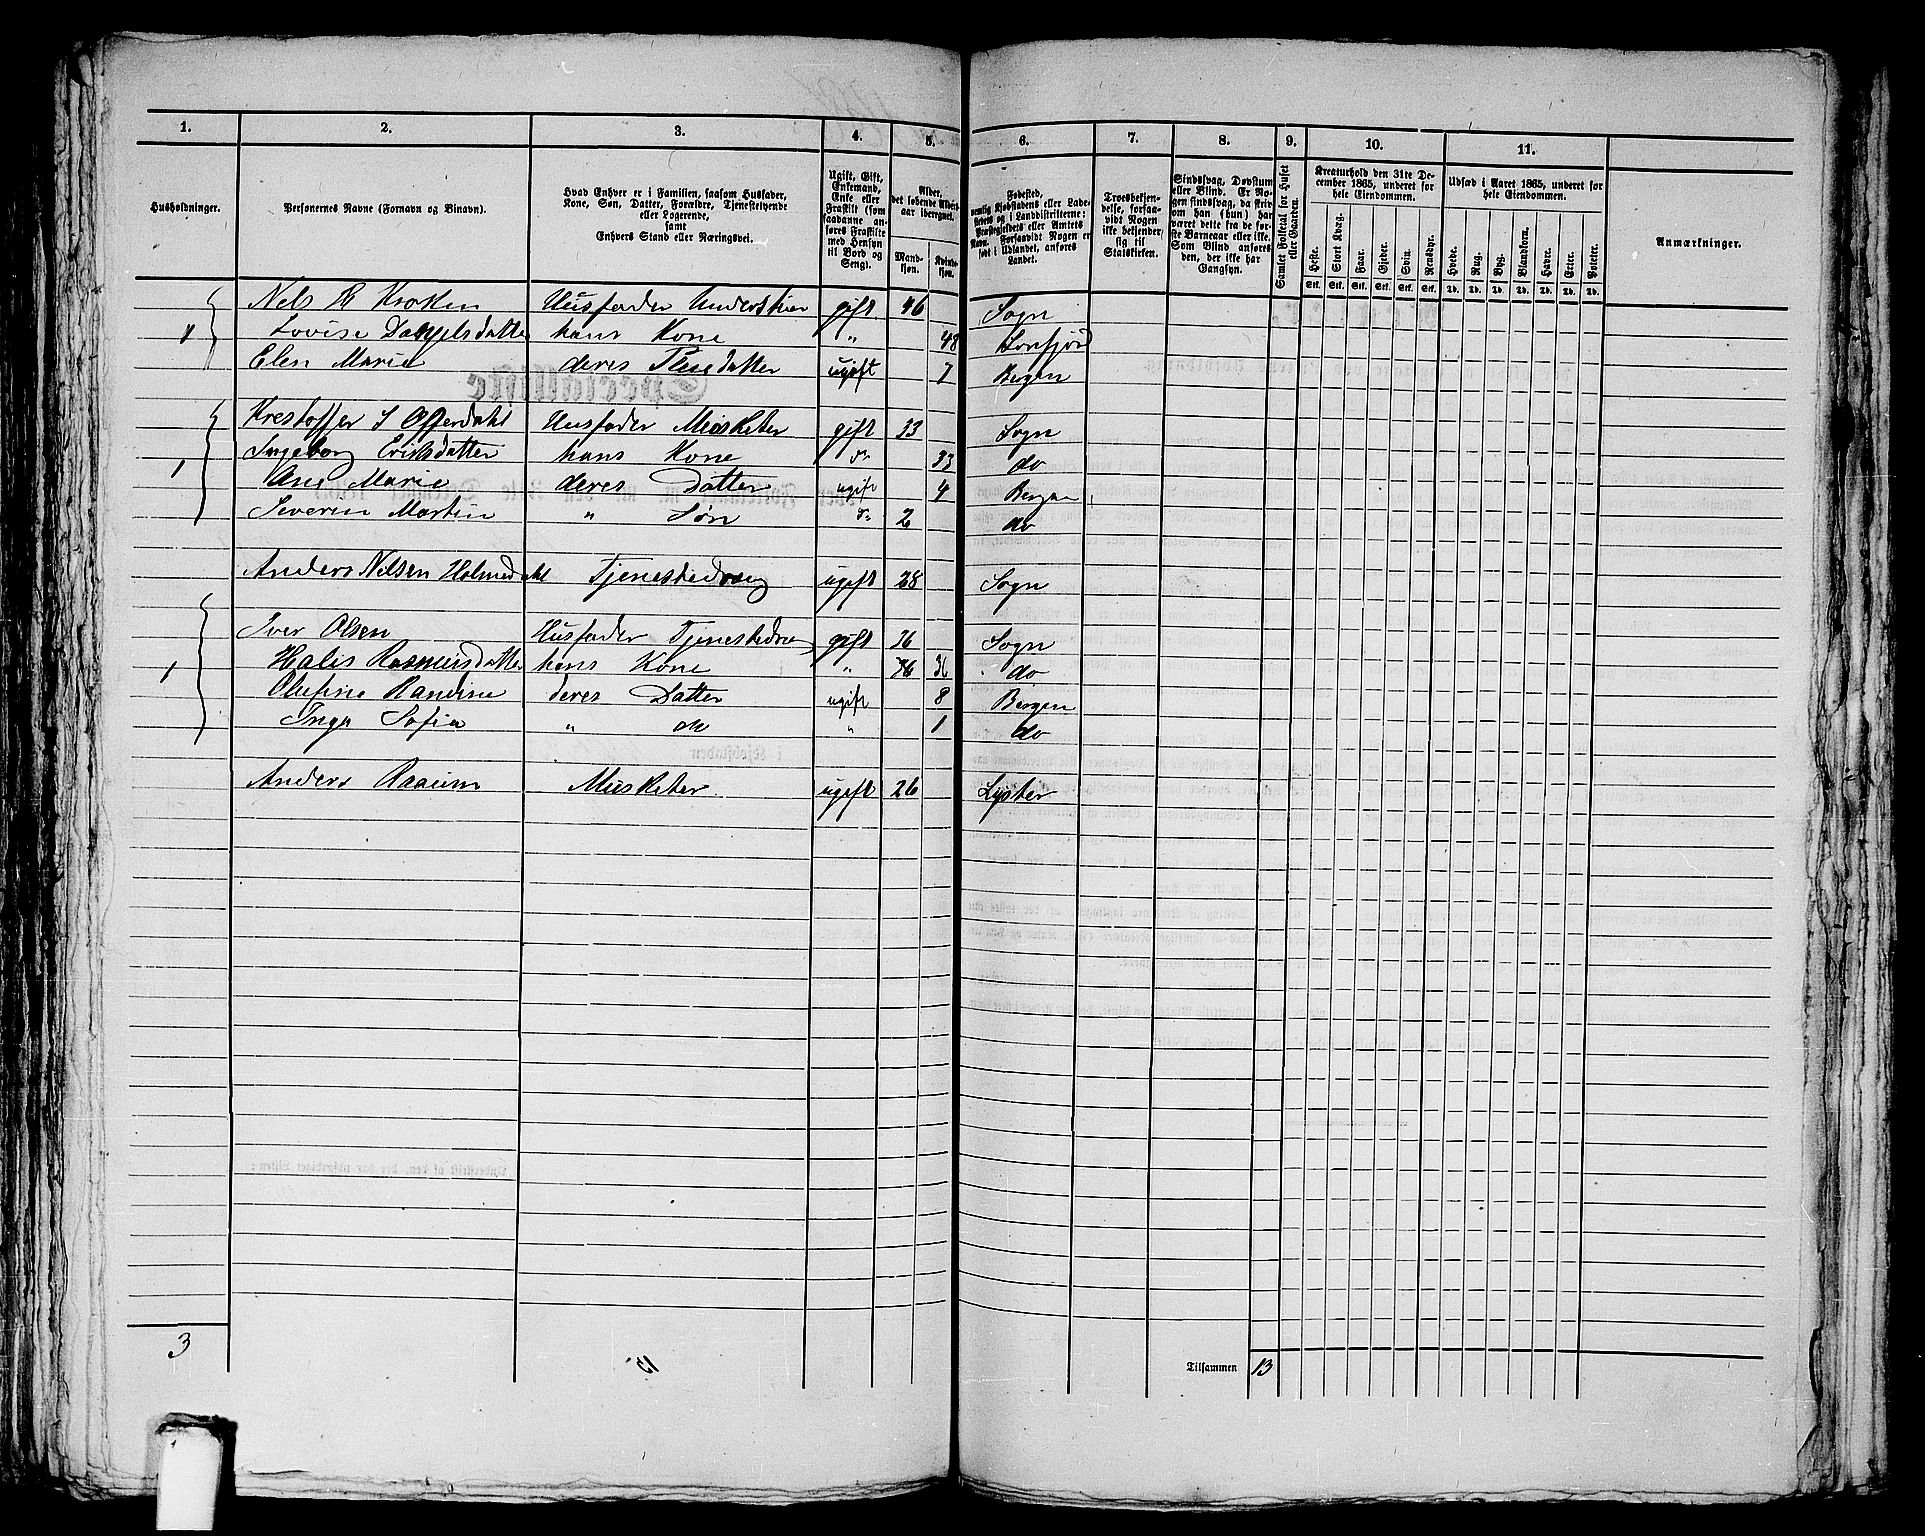 1. 2. 3. 4. 5. 6. 7. 8. 9. 10. 11.
Husholdninger.
Personernes Navne (Fornavn og Binavn).
Hvad Enhver er i Familien, saasom Husfader,
Kone, Søn, Datter, Forældre, Tjenestetyende
eller Logerende,
samt
Enhvers Stand eller Næringsvei.
Ugift, Gift,
Enkemand,
Enke eller
Fraskilt (som
saadanne an-
føres Fraskilte
med Hensyn
til Bord og
Seng).
Alder,
det løbende Alders-
aar iberegnet.
Mand-
kjøn.
Kvinde-
kjøn.
Fødested,
nemlig Kjøbstadens
eller Lade-
stedets og i Landdistrikterne:
Præstegjeldets eller Amtets
Navn. Forsaavidt Nogen er
født i Udlandet, anføres
Landet.
Troesbekjen-
delse, forsaa-
vidt Nogen
ikke bekjender
sig til
Statskirken.
Sindssvag, Døvstum
eller Blind. Er No-
gen sindssvag, da skriv
om han (hun) har
været dette fra de før-
ste Barneaar eller ikke.
Som Blind anføres
den, der ikke har
Gangsyn.
Samlet Folketal for Huset
eller Gaarden.
Kreaturhold den 31te De-
cember 1865, underet for
hele Eiendommen.
Heste. Stort Kvæg. Faar. Gjeder. Svin. Rensdyr.
Stk. Stk. Stk. Stk. Stk. Stk.
Udsæd i Aaret 1865, underet for
hele Eiendommen.
Hvede. Rug. Byg. Blandkorn. Havre. Erter. Poteter.
Td. Td. Td. Td. Td. Td. Td.
Anmærkninger.
Nels R Krokken Husfader Underskier gift 46 Sogn
1 Lovise hans Kone " 48
Elen Marie deres ugift 7 Bergen
Krestoffer S Offerdahl Husfader Musketer gift 33 Sogn
1 Ingeborg Eriksdatter hans Kone 33 do
Ane Marie deres Datter ugift 4 Bergen
Severin Martin " Søn 2 do
Anders Nilsen Holmedahl Tjenestedreng ugift 28 Sogn
Iver Olsen Husfader gift 36 Sogn
1 Halis Rasmusdatter hans Kone " 36 do
Olufine Randine deres Datter ugift 8 Bergen
Inga Sofia " do " 1 do
Anders Raaum Musketer ugift 26 Lyster
3
Tilsammen 13